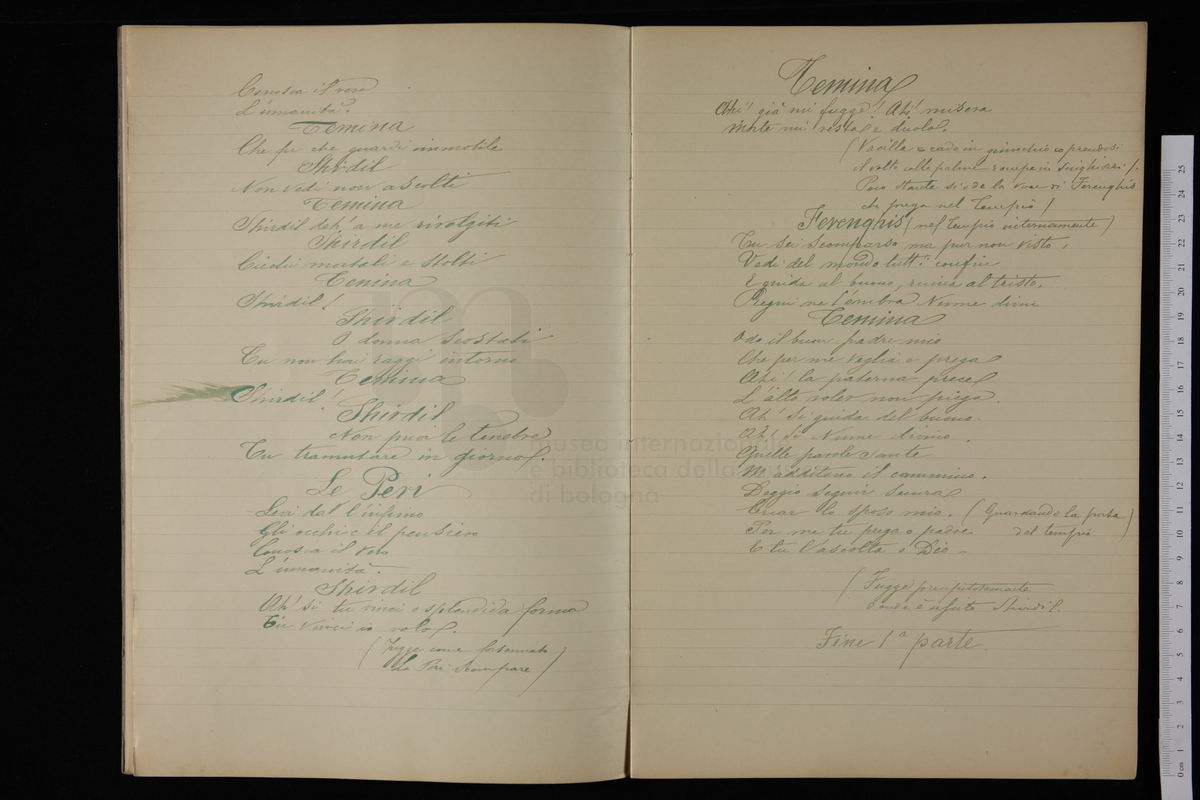 Conosca il vero
L'umanità.
Temina
Che fu che guardi immobile
Shirdil
Non vedi non ascolti
Temina
Shirdil deh! a me rivolgiti
Shirdil
Ciechi mortali e stolti
Temina
Shirdil!
Shirdil
O donna scostati
Tu non hai raggi intorno
Temina
Shirdil!
Shirdil
Non puoi le tenebre
Tu tramutare in giorno.
Le Peri
Levi dal l'infimo
Gli occhi e il pensiero
Conosca il vero
L'umanità.
Shirdil
Ah! si tu vinci o splendida forma
Tu vinci io volo.
(Fugge come forsennato
La Peri scompare)
Temina
Ahi! già mi fugge! Ahi! misera
mi resta è duolo.
(Vacilla e cade in ginocchio e prendosi
il volto colle palme rompe in singhiozzi.
Poco stante si ode la voce di Ferenghis
che prega nel tempio)
Ferenghis (nel tempio internamente)
Tu sei scomparso ma pur non visto,
Vedi del mondo tutt'i confin
E guida al buono, ruina al tristo,
Regni ne l'ombra Nume divin
Temina
Odo il buon padre mio
Che per me veglia e prega
Ahi! la paterna prece
L'alto voler non piega.
Ah! Si guida del buono.
Ah! si Nume divino.
Quelle parole sante
M'additano il cammino.
Deggio seguir sicura
lo sposo mio. (Guardando la porta
Per me tu prega o padre del tempio)
E tu l'ascolta o Dio
(Fugge precipitosamente
onde è uscito Shirdil.
Fine 1a parte.
museo internazionale
e biblioteca della musica
di bologna
0 cm 1 2 3 4 5 6 7 8 9 10 11 12 13 14 15 16 17 18 19 20 21 22 23 24 25